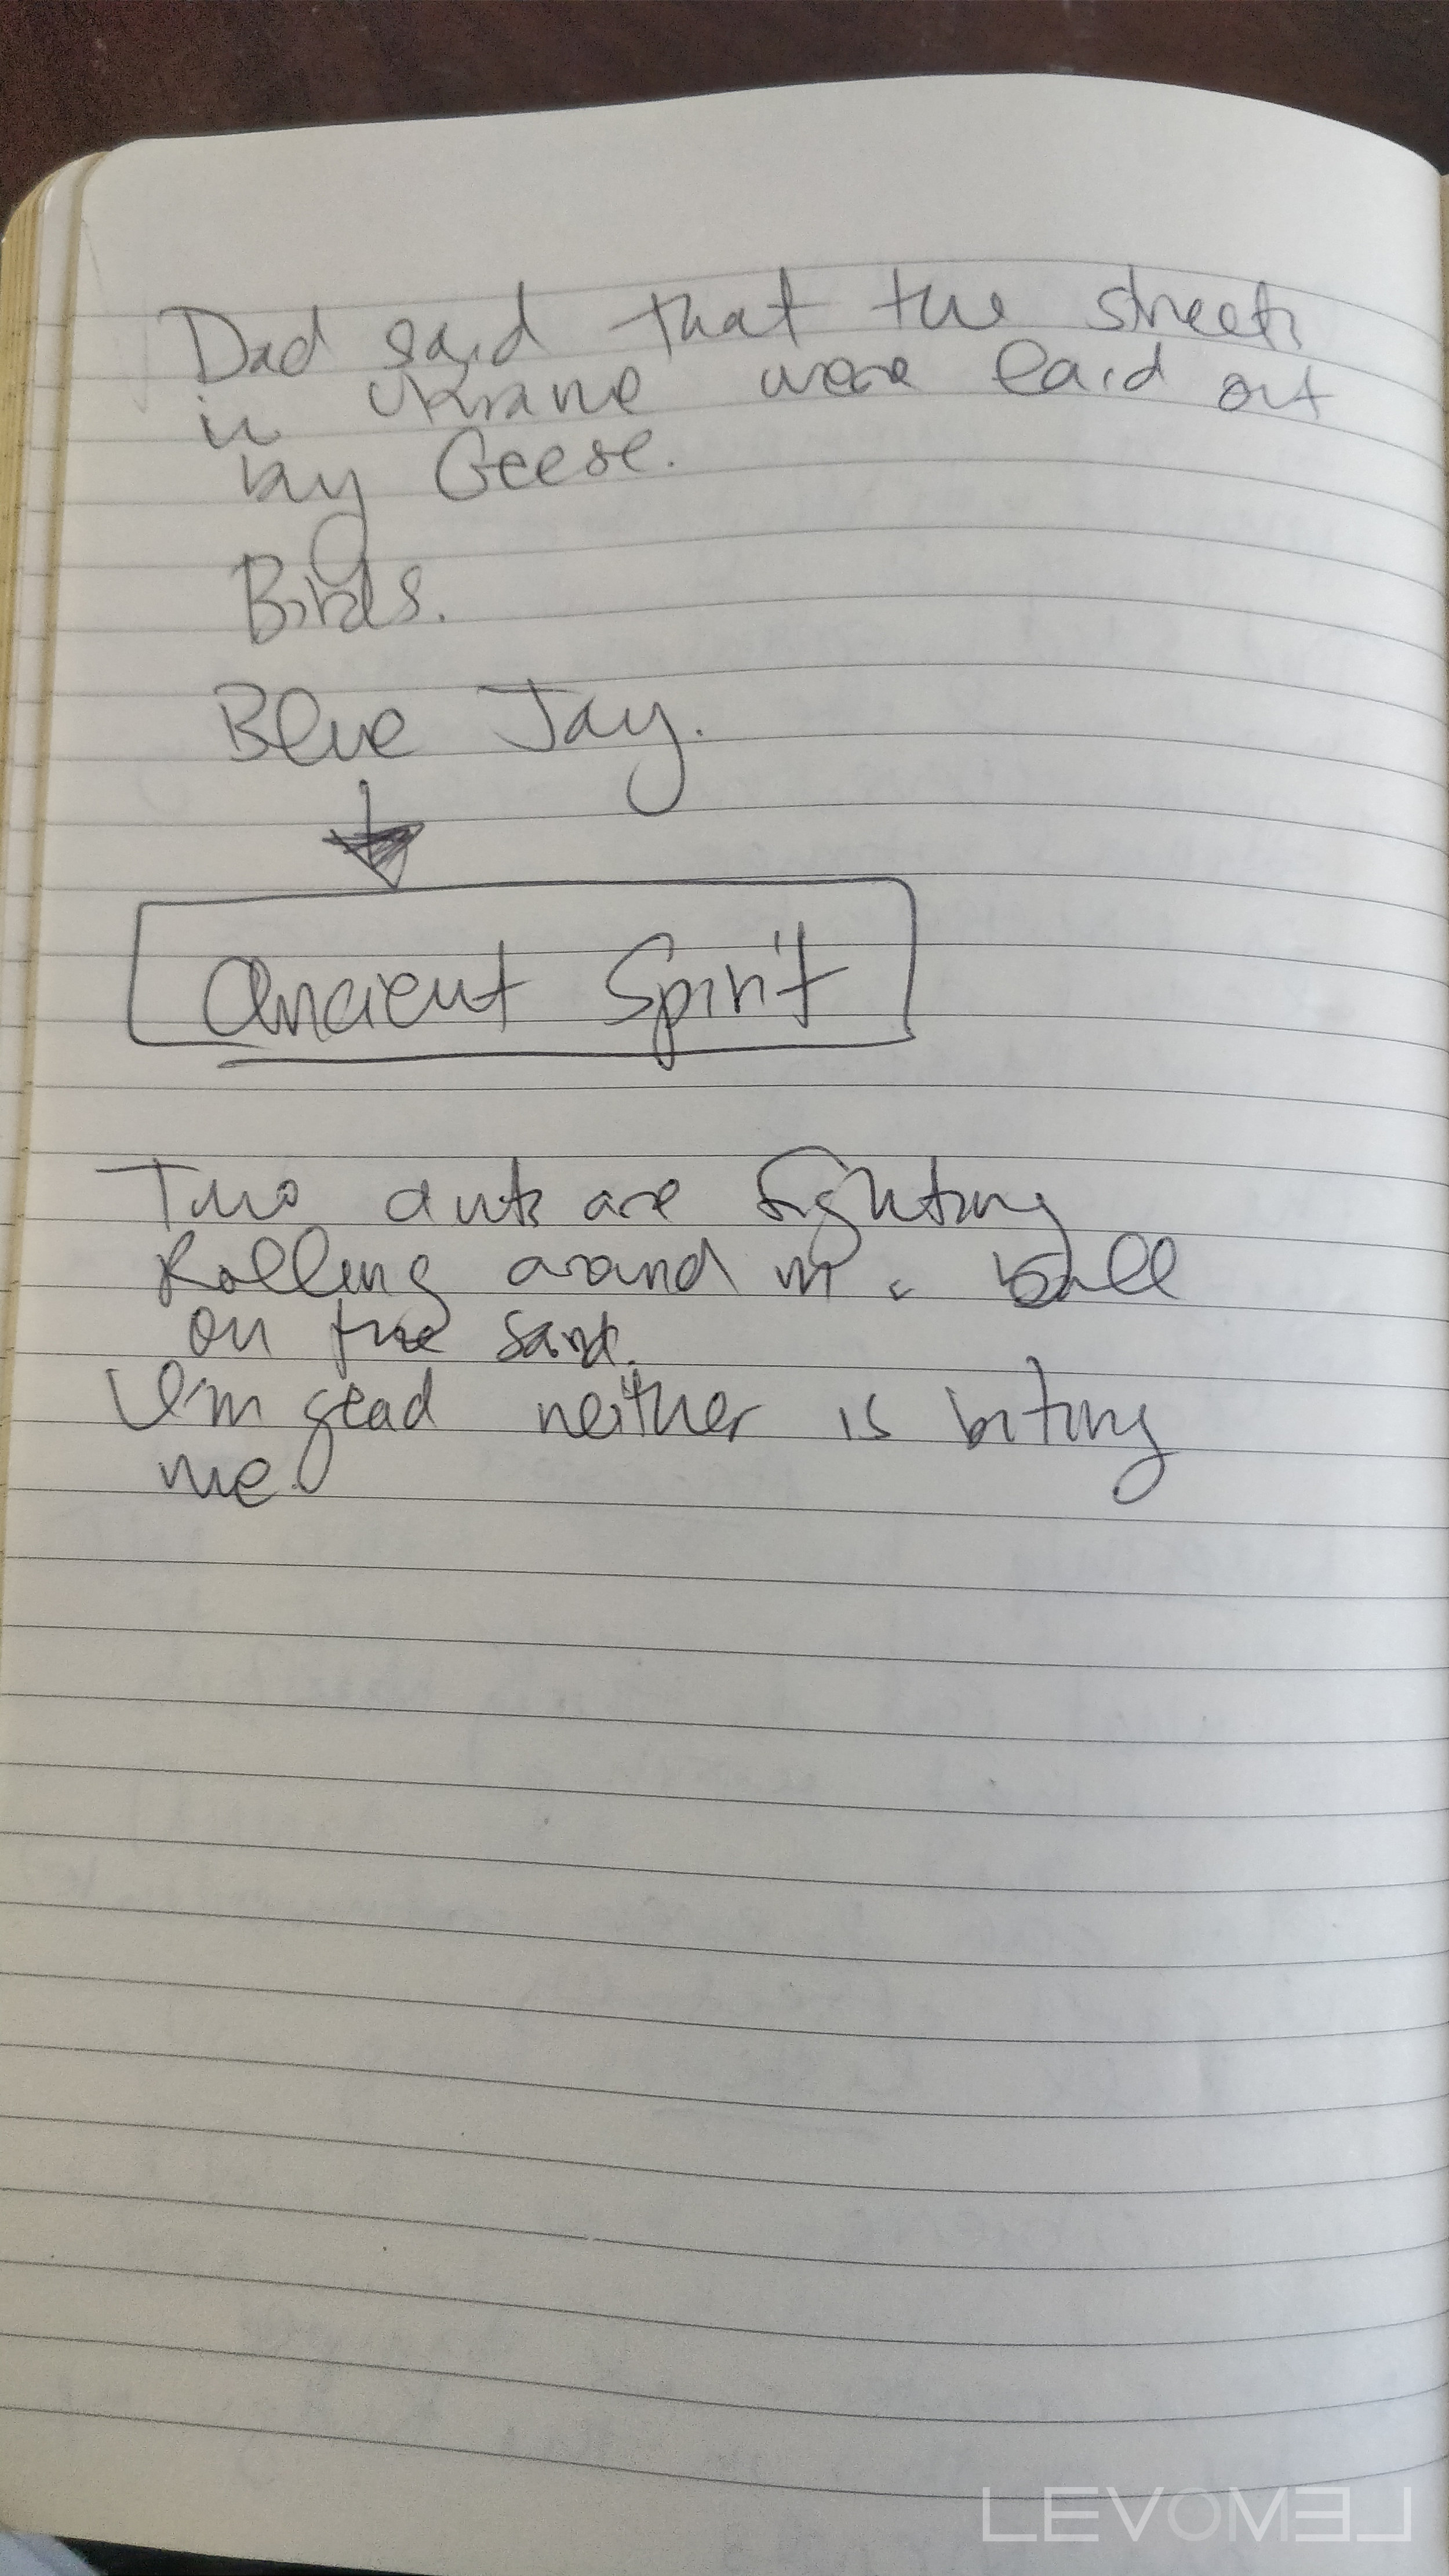 Dad said that the streets
in Ukraine were laid out
by Geese.
Birds.
Blue Jay.
Ancient Spirit
Two ants are fighting
Rolling around in a ball
on the sand.
I'm glad neither is biting
me.
LEVOMƎL